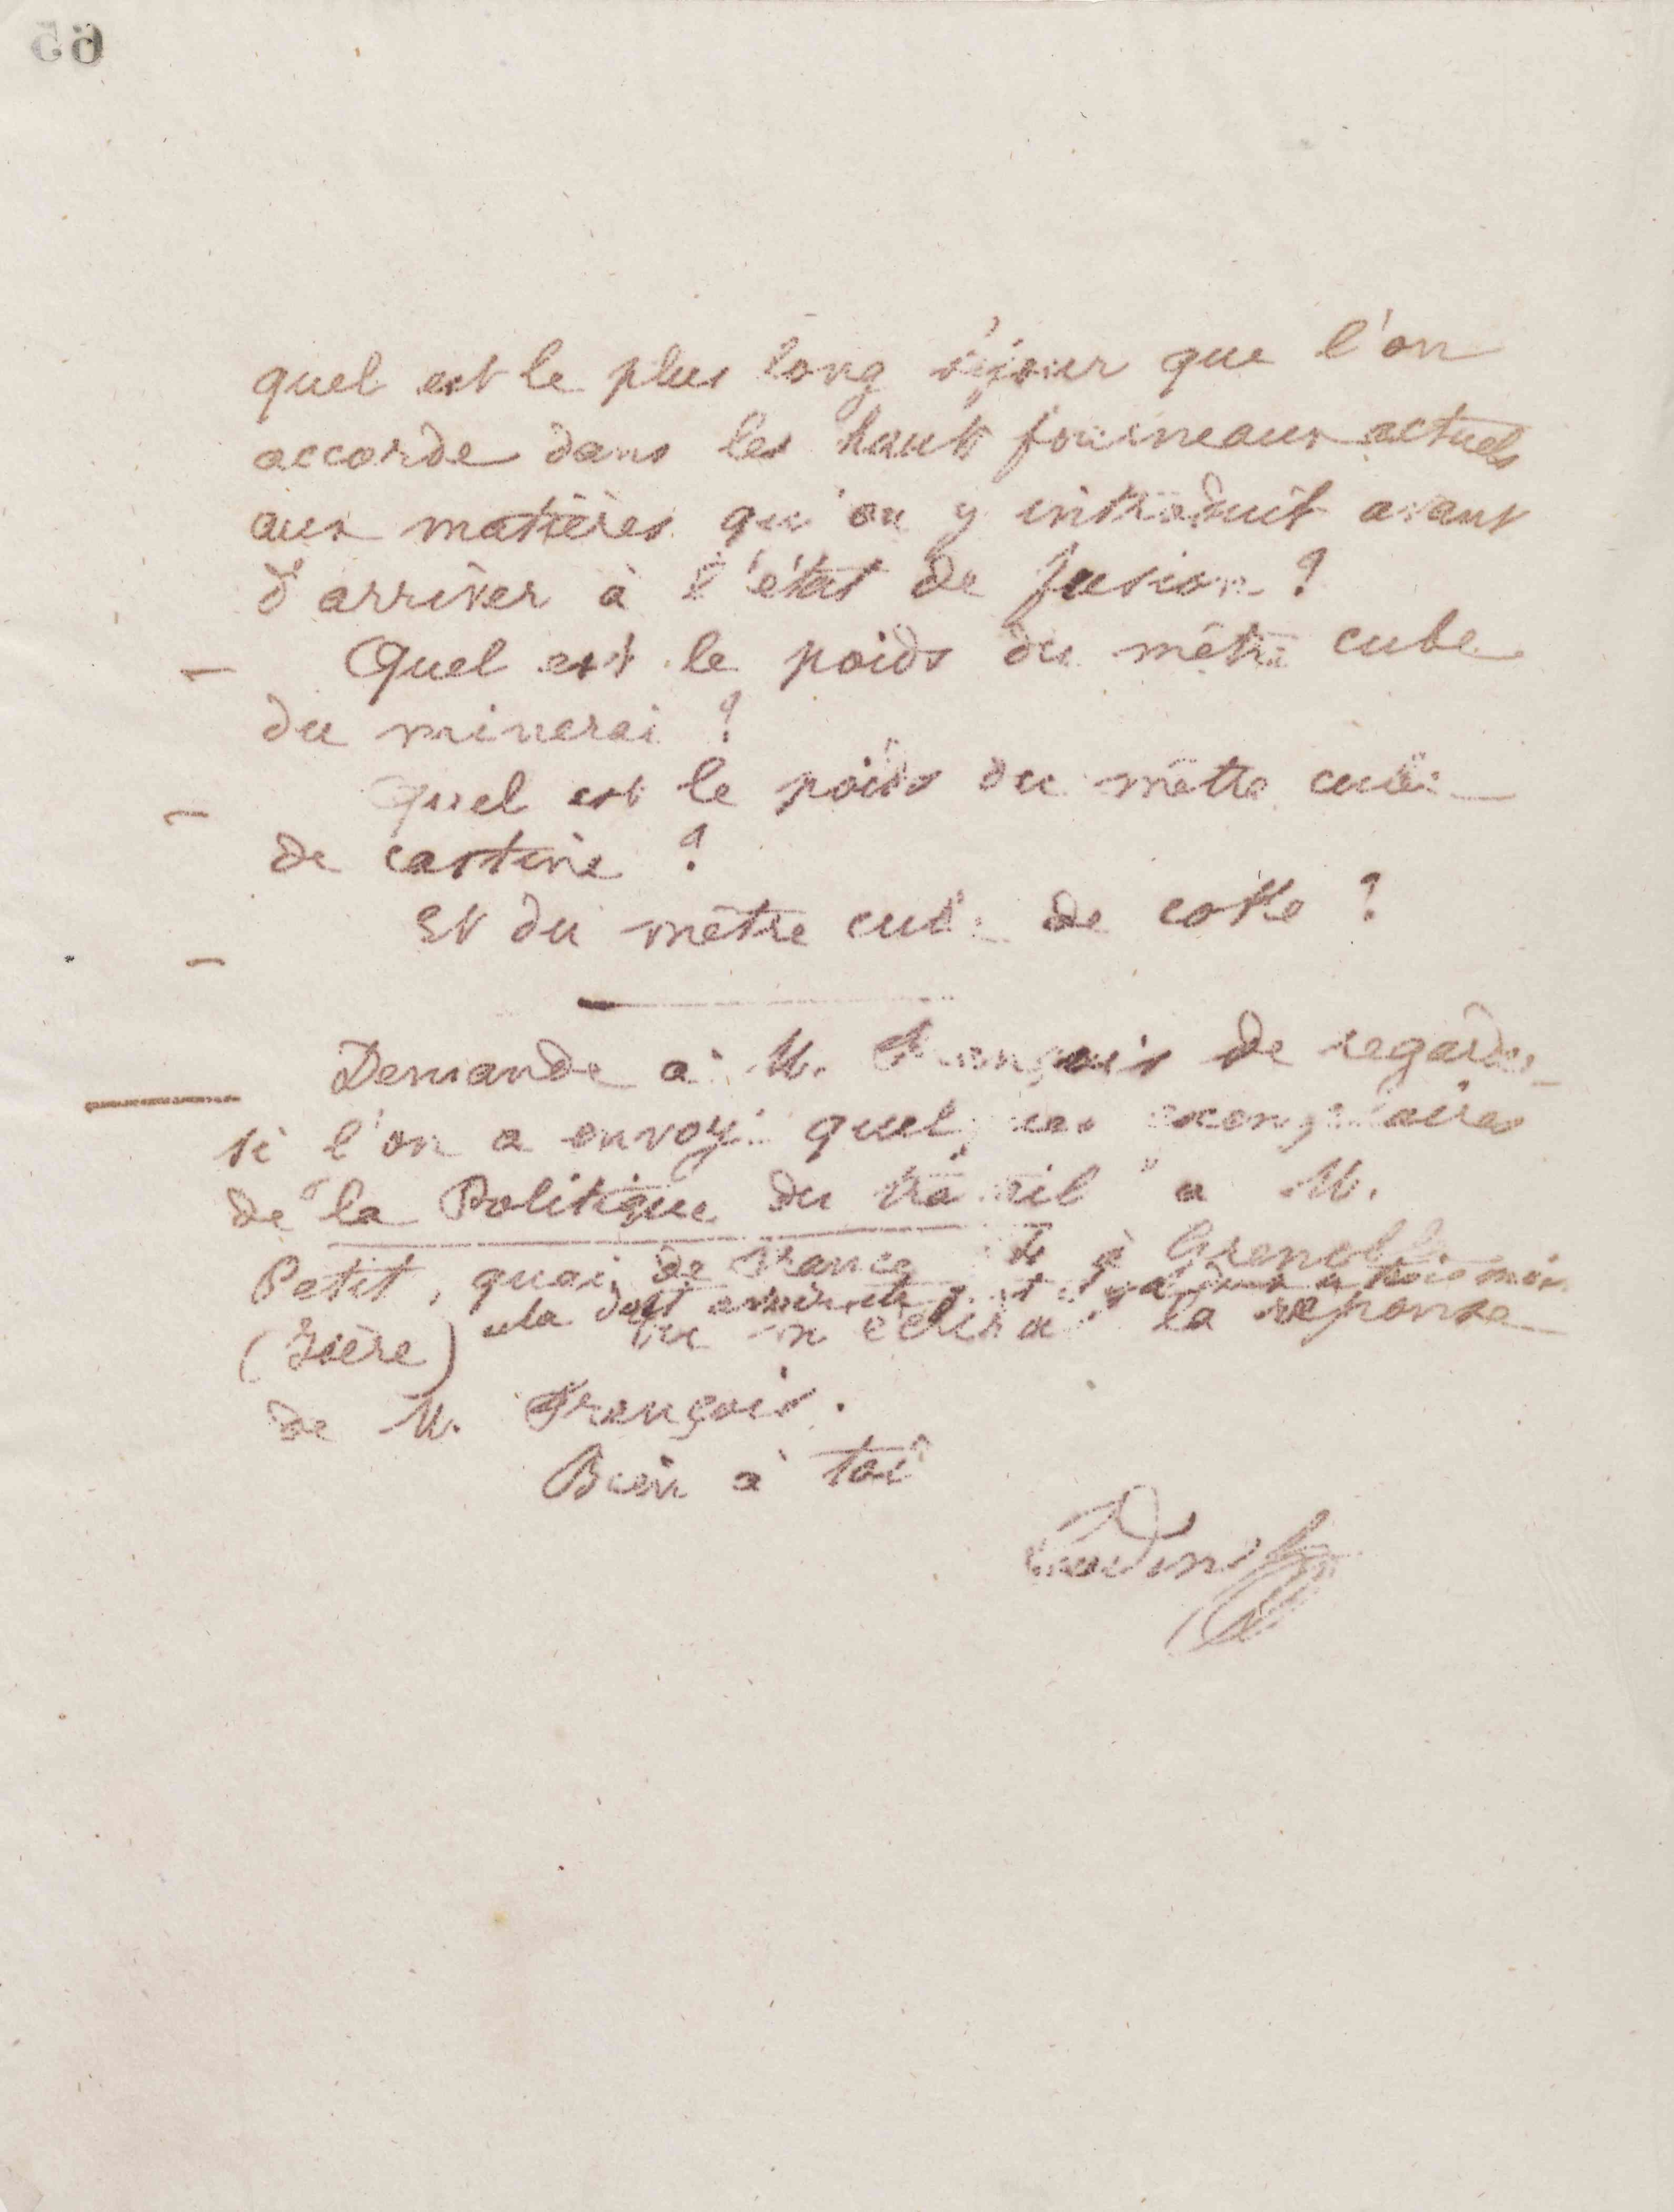 65
quel est le plus long séjour que l'on
accorde dans les hauts fourneaux actuels
aux matières qu'on y introduit avant
d'arriver à l'état de fusion ?
— Quel est le poids du mètre cube
du minerai ?
— Quel est le poids du mètre cube
de castine ?
— Et du mètre cube de coke ?
— Demande à M. François de regarder
si l'on a envoyé quelques exemplaires
de "la Politique du travail" à M.
Petit, quai de France à Grenoble
cela doit avoir été trois mois
(Isère) Tu m'écriras la réponse
de M. François.
Bien à toi
Godin